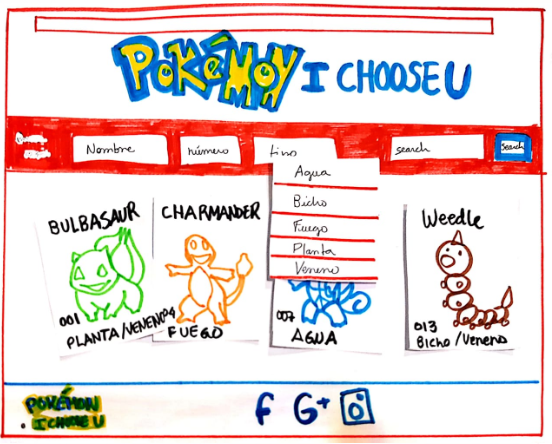 POKéMON I CHOOSE U
Nombre
número
tipo
search
search
Agua
Bicho
Fuego
Planta
Veneno
BULBASAUR
001
PLANTA/VENENO
CHARMANDER
004
FUEGO
007
AGUA
Weedle
013
Bicho/Veneno
POKÉMON
I CHOOSE U
f G+